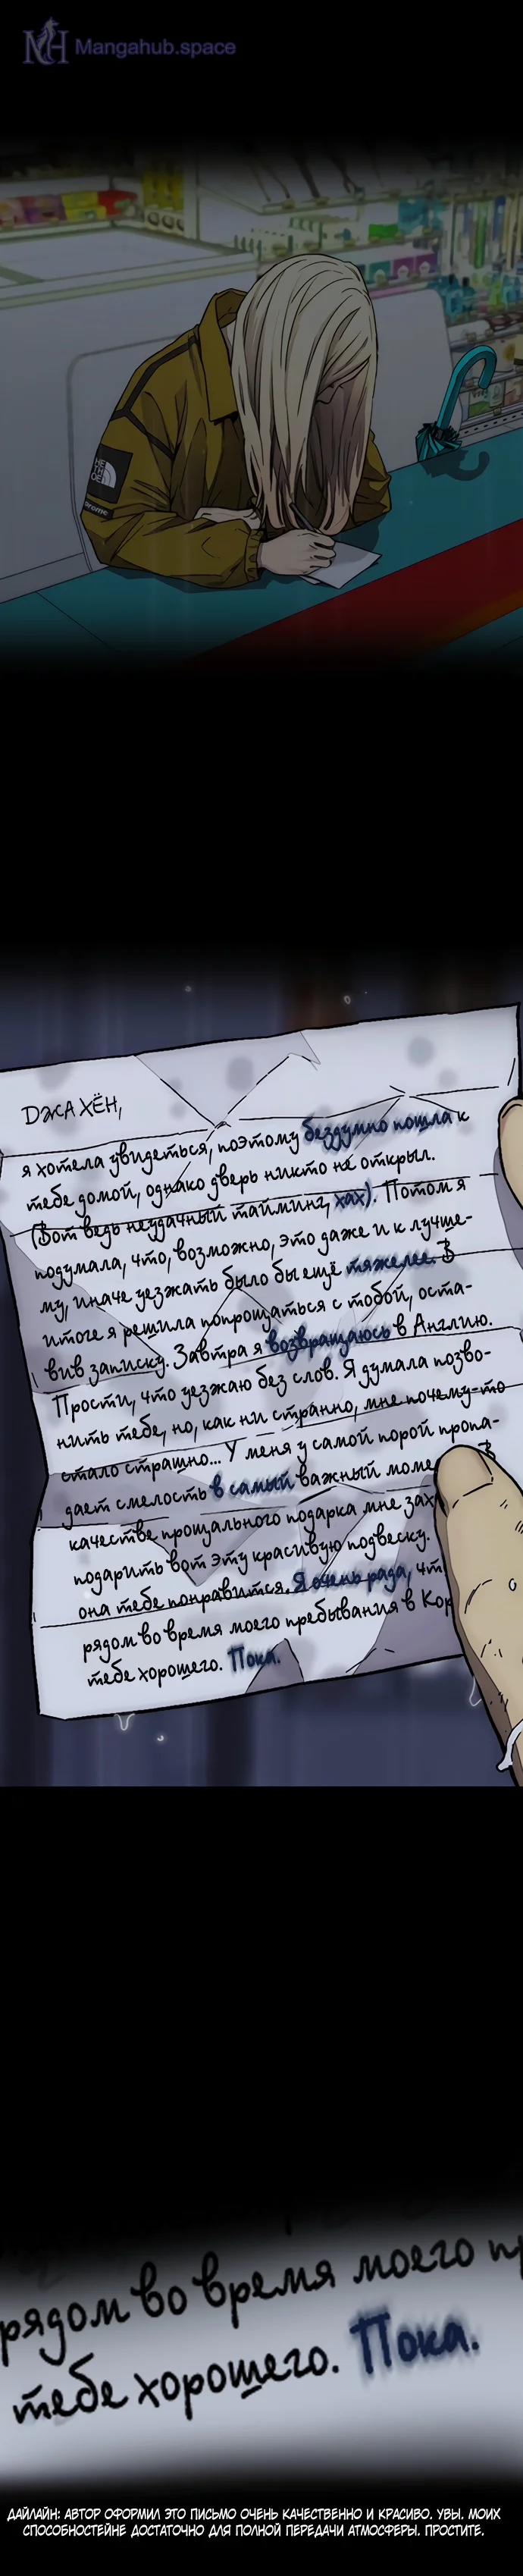 Mangahub.space
THE
NORTH
FACE
ДЖАХЁН,
я хотела увидеться, поэтому бездумно пошла к
тебе домой, однако дверь никто не открыл.
(Вот ведь неудачный тайминг, хах). Потом я
подумала, что, возможно, это даже и к лучше-
му, иначе уезжать было бы ещё тяжелее. В
итоге я решила попрощаться с тобой, оста-
вив записку. Завтра я возвращаюсь в Англию.
Прости, что уезжаю без слов. Я думала позво-
нить тебе, но, как ни странно, мне почему-то
стало страшно... У меня у самой порой пропа-
дает смелость в самый важный моме
В
качестве прощального подарка мне зах
подарить вот эту красивую подвеску.
она тебе понравится. Я очень рада, чт
рядом во время моего пребывания в Кор
тебе хорошего. Пока.
рядом во время моего п
тебе хорошего. Пока.
ДАЙЛАЙН: АВТОР ОФОРМИЛ ЭТО ПИСЬМО ОЧЕНЬ КАЧЕСТВЕННО И КРАСИВО. УВЫ. МОИХ
СПОСОБНОСТЕЙНЕ ДОСТАТОЧНО ДЛЯ ПОЛНОЙ ПЕРЕДАЧИ АТМОСФЕРЫ. ПРОСТИТЕ.